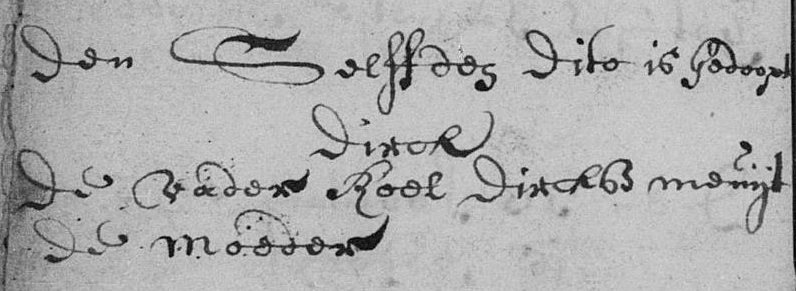 den Selffden dito is gedoopt
Dirck
de vader Roel Dircksz meuijt
de moeder